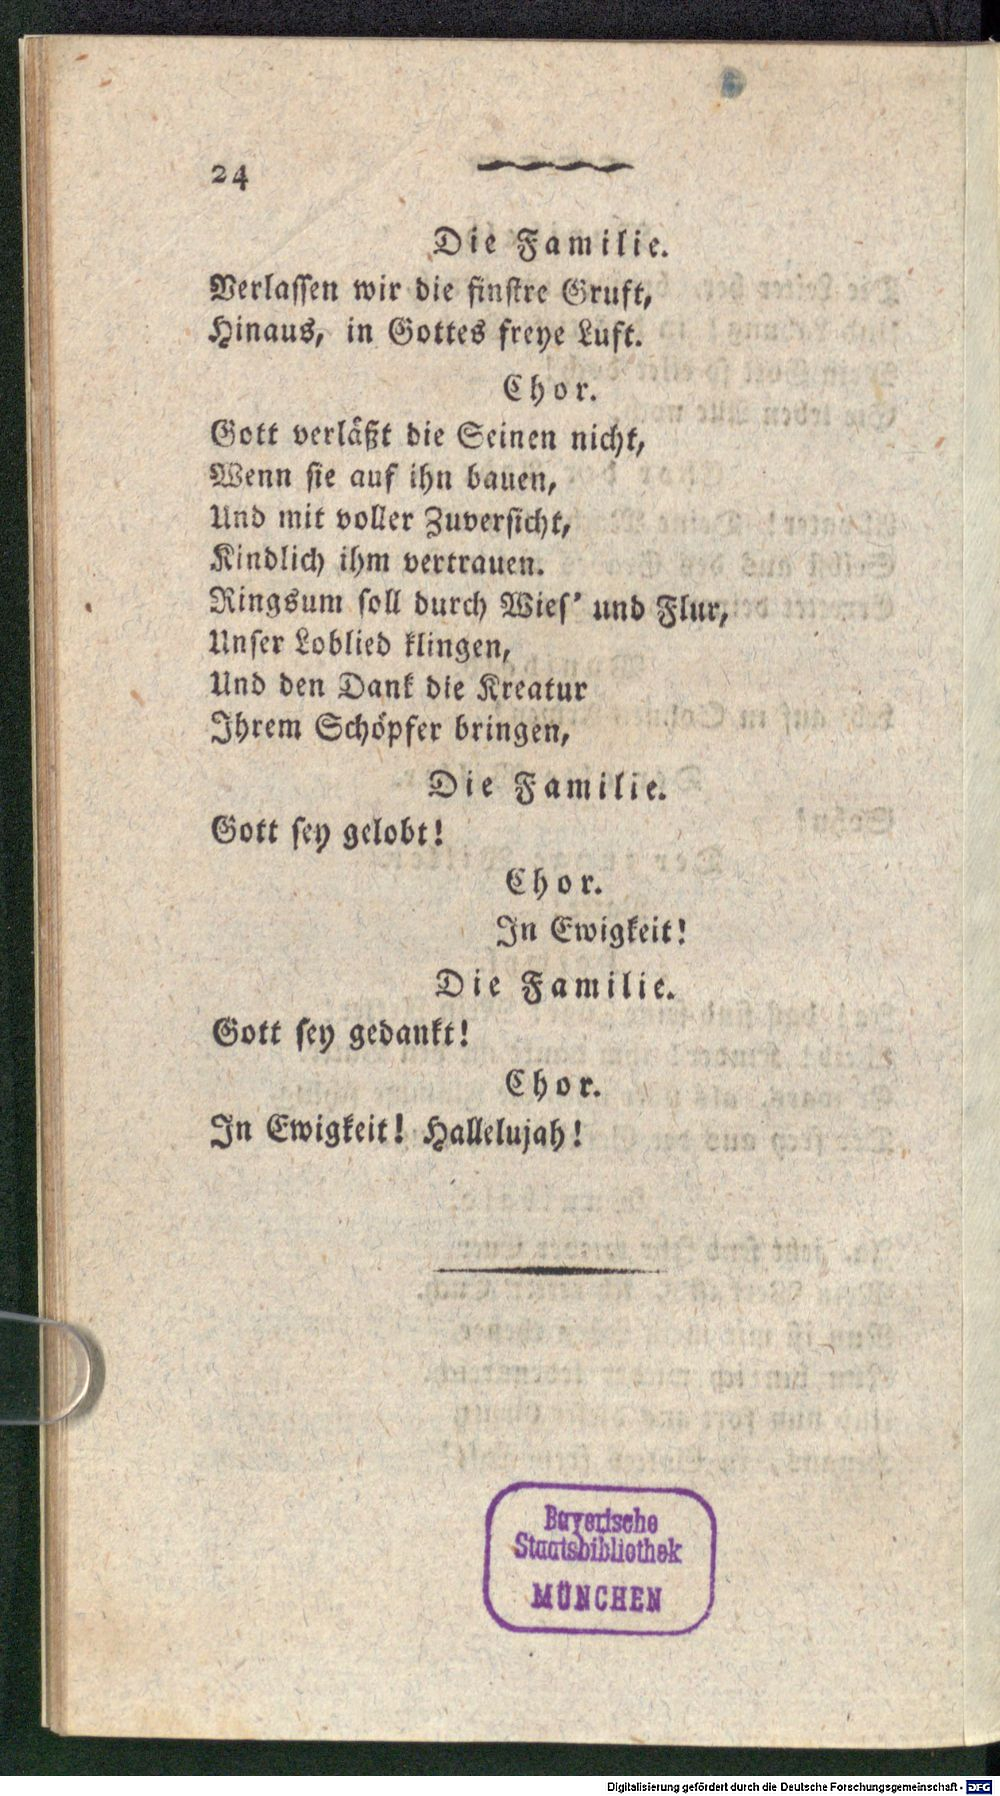 24
Die Familie.
Verlassen wir die finstre Gruft,
Hinaus, in Gottes freye Luft.
Chor.
Gott verläßt die Seinen nicht,
Wenn sie auf ihn bauen,
Und mit voller Zuversicht,
Kindlich ihm vertrauen.
Ringsum soll durch Wies' und Flur,
Unser Loblied klingen,
Und den Dank die Kreatur
Ihrem Schöpfer bringen,
Die Familie.
Gott sey gelobt!
Chor.
In Ewigkeit!
Die Familie.
Gott sey gedankt!
Chor.
In Ewigkeit! Hallelujah!
Bayerische
Staatsbibliothek
MÜNCHEN
Digitalisierung gefördert durch die Deutsche Forschungsgemeinschaft - DFG